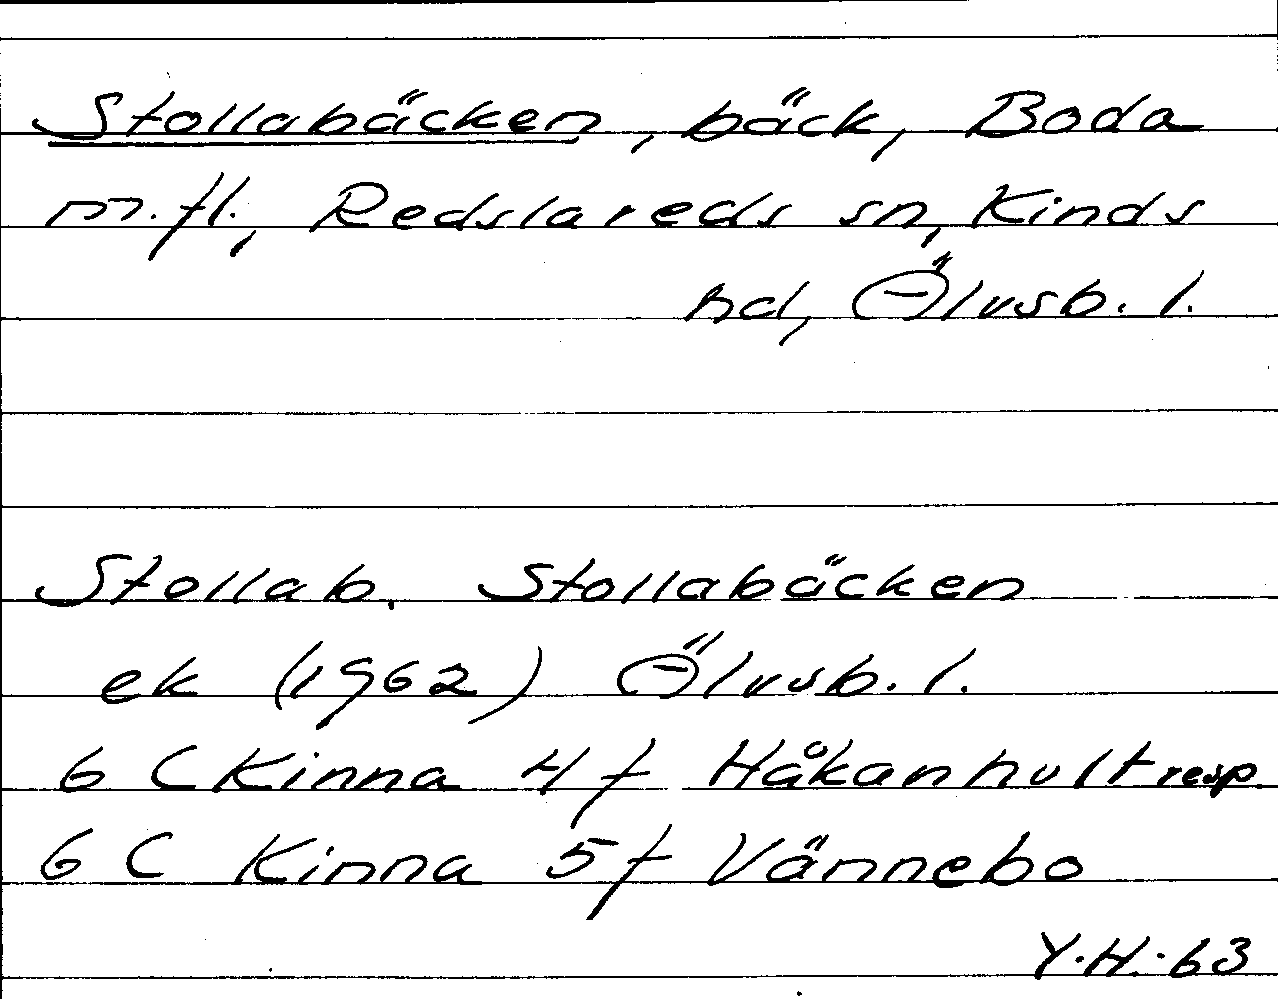 Stollabäcken, bäck, Boda
m.fl., Redslareds sn, Kinds
hd, Älvsb. l.
Stollab. Stollabäcken
ek (1962) Älvsb. l.
6 C Kinna 4 f Håkanhult resp.
6 C Kinna 5 f Vännebo
Y.H. 63